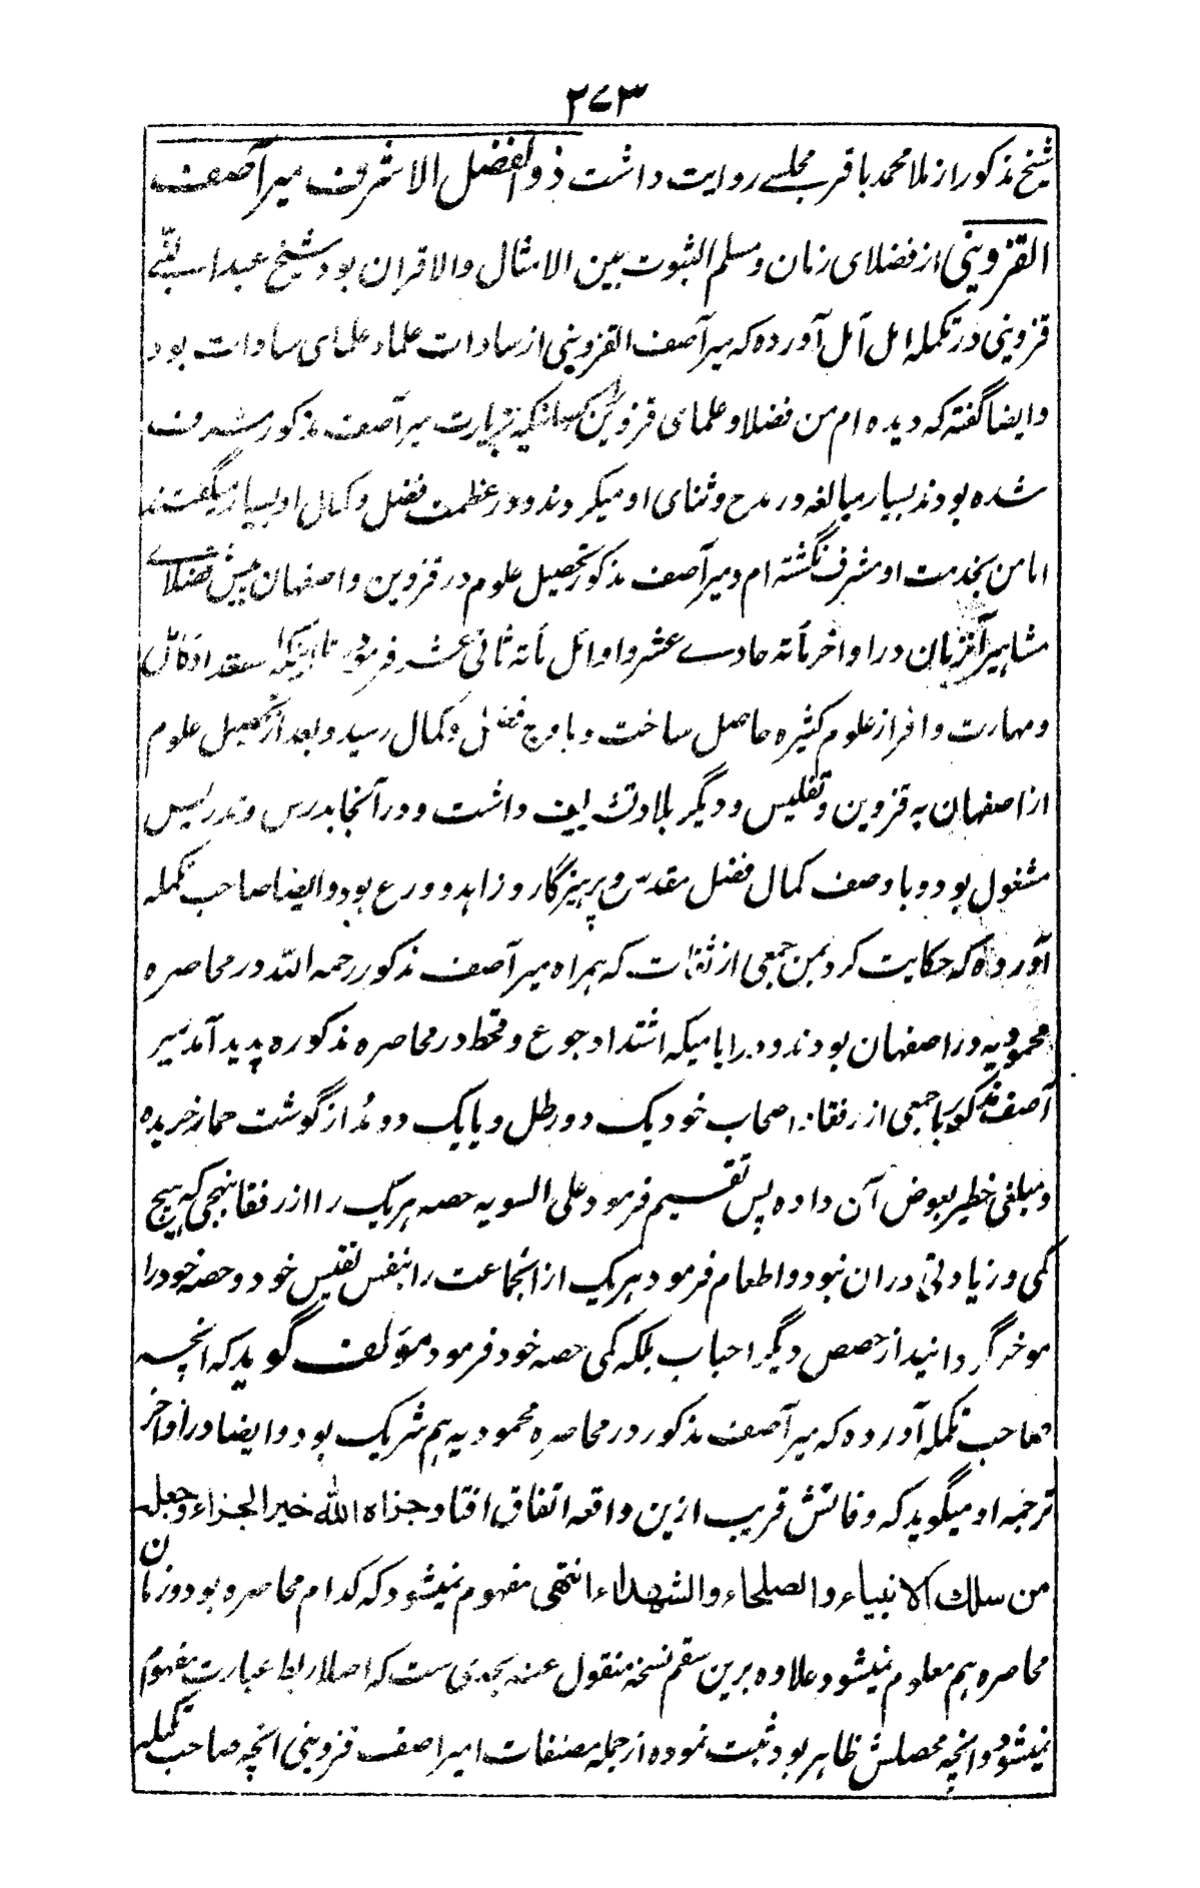 ۲۷۳
شیخ مذکور از ملا محمد باقر مجلسے روایت داشت ذو الفضل الاشرف میر آصف
القزوینی از فضلای زمان و مسلم الثبوت بین الامثال والاقران بود شیخ عبد النبے
قزوینی در تکمله امل آمل آورده که میر آصف القزوینی از سادات علماء علمای سادات بود
و ایضا گفته که دیده ام من فضلا و علمای قزوین کسانیکه بزیارت میر آصف مذکور مشرف
شده بودند بسیار مبالغه در مدح و ثنای او میکردند و در عظمت فضل و کمال او بسیار میگفتند
اما من بخدمت او مشرف نگشته ام و میر آصف مذکور تحصیل علوم در قزوین و اصفهان پیش فضلاے
مشاهیر آنزمان در اواخر مأته حادے عشر و اوائل مأته ثانی عشر فرمود تا اینکه استعداد کامل
و مهارت وافر از علوم کثیره حاصل ساخت و باوج فضل و کمال رسید و بعد از تحصیل علوم
از اصفهان به قزوین و تفلیس و دیگر بلاد تشریف داشت و در آنجا بدرس و تدریس
مشغول بود و با وصف کمال فضل مقدس و پرهیزگار و زاهد و ورع بود و ایضا صاحب تکمله
آورده که حکایت کرد بمن جمعی از ثقات که همراه میر آصف مذکور رحمه الله در محاصره
محمودیه در اصفهان بودند و در ایامیکه اشتداد جوع و قحط در محاصره مذکوره پدید آمد میر
آصف مذکور با جمعی از رفقا و اصحاب خود یک دو رطل و یا یک دو مُد از گوشت حمار خریده
و مبلغی خطیر بعوض آن داده پس تقسیم فرمود علی السویه حصه هریک را از رفقا بنهجی که هیچ
کمی و زیادتی دران نبود و اطعام فرمود هریک از انجماعت را بنفس نفیس خود و حصه خود را
موخر گردانید از حصص دیگر احباب بلکه کمی حصه خود فرمود مؤلف گوید که انچه
صاحب تکمله آورده که میر آصف مذکور در محاصره محمودیه هم شریک بود و ایضا در اواخر
ترجمه او میگوید که وفاتش قریب ازین واقعه اتفاق افتاد جزاه الله خیر الجزاء وجعله
من سلك الانبیاء والصلحاء والشهداء انتهی مفهوم نمیشود که کدام محاصره بود و زمان
محاصره هم معلوم نمیشود علاوه برین سقم نسخه منقول عنه بحدی ست که اصلا ربط عبارت مفهوم
نمیشود و انچه محصلش ظاهر بود ثبت نموده از جمله مصنفات امیر اصف قزوینی انچه صاحب تکمله